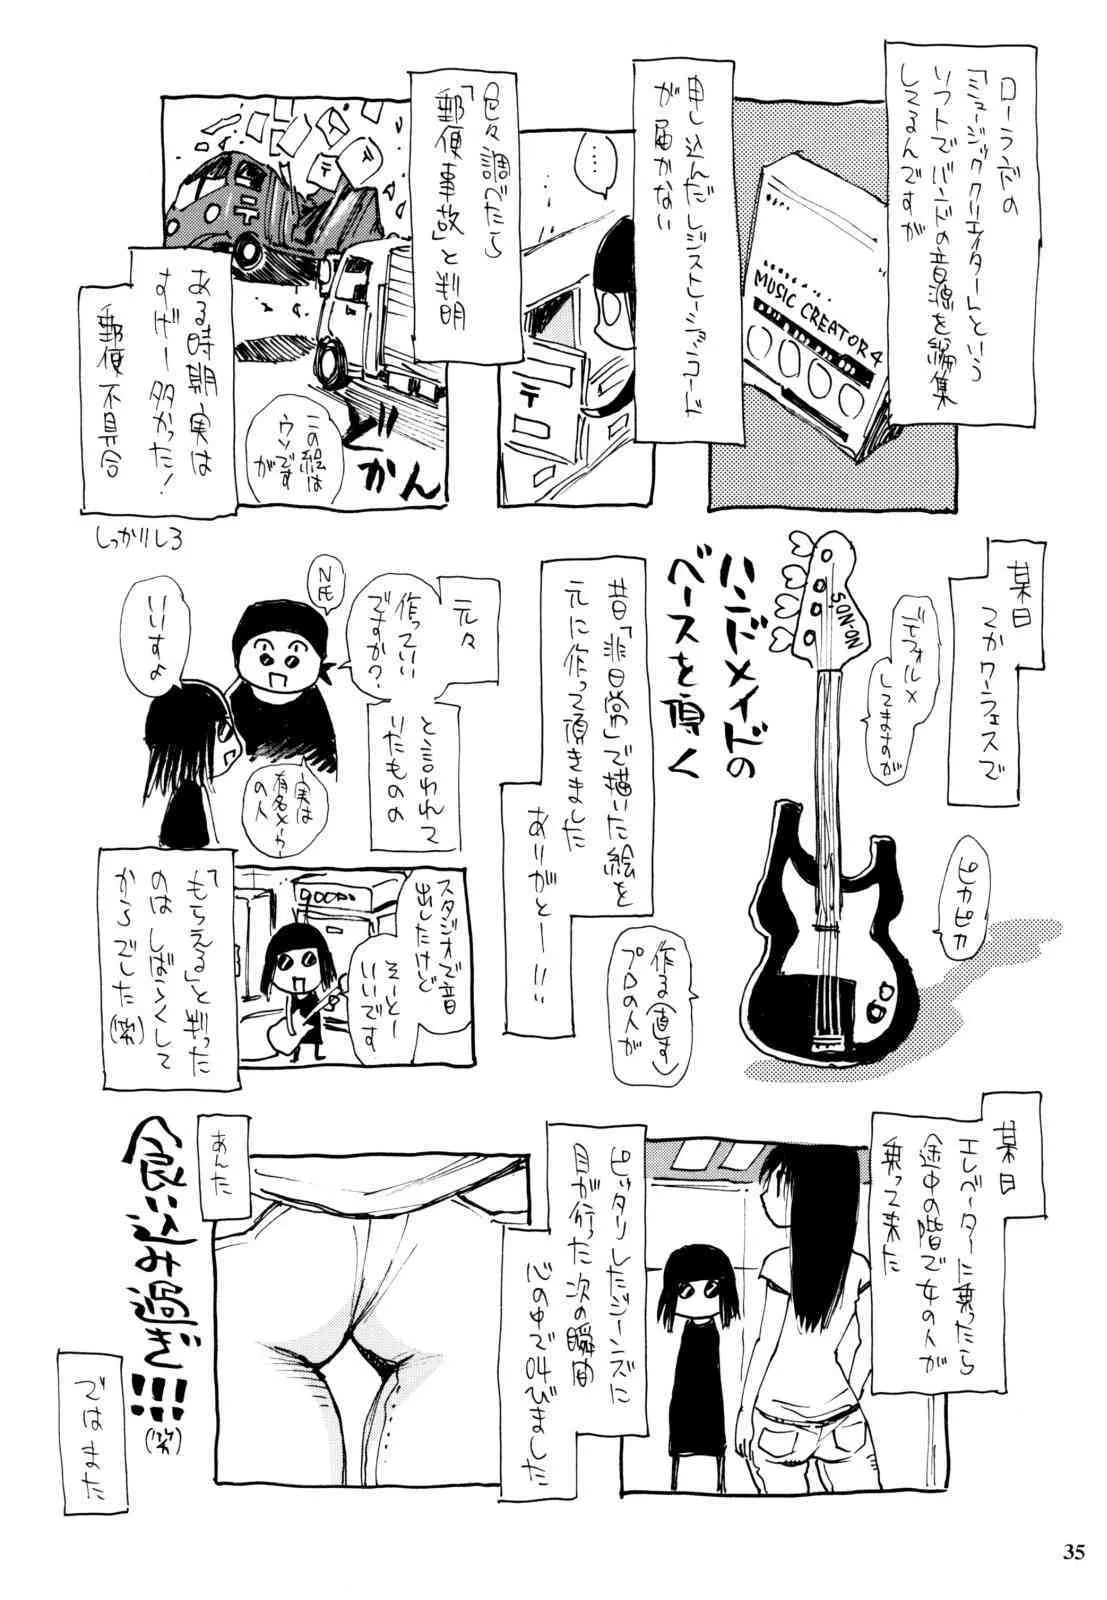 ローランドの
「ミュージッククリエイター」という
ソフトでバンドの音源を編集
してるんですが
MUSIC CREATOR 4
申し込んだレジストレーションコード
が届かない
…
〒
色々調べたら
「郵便事故」と判明
〒
どかん
この絵は
ウソです
が
ある時期実は
すげー多かった!
郵便不具合
しっかりしろ
某日
フェスで
SON-ON
デフォルメ
してますのが
ピカピカ
ハンドメイドの
ベースを頂く
昔「非日常」で描いた絵を
元に作って頂きました
ありがとー!!
作る(直す)
プロの人が
元々
N氏
作っていい
ですか?
いいすよ
と言われて
いたものの
実は
有名メーカー
の人
スタジオで音
出したけど
そーとー
いいです
「もらえる」と判った
のはしばらくして
からでした(笑)
某日
エレベーターに乗ったら
途中の階で女の人が
乗って来た
ピッタリしたジーンズに
目が行った次の瞬間
心の中で叫びました
あんた
食い込み過ぎ!!!
(笑)
ではまた
35